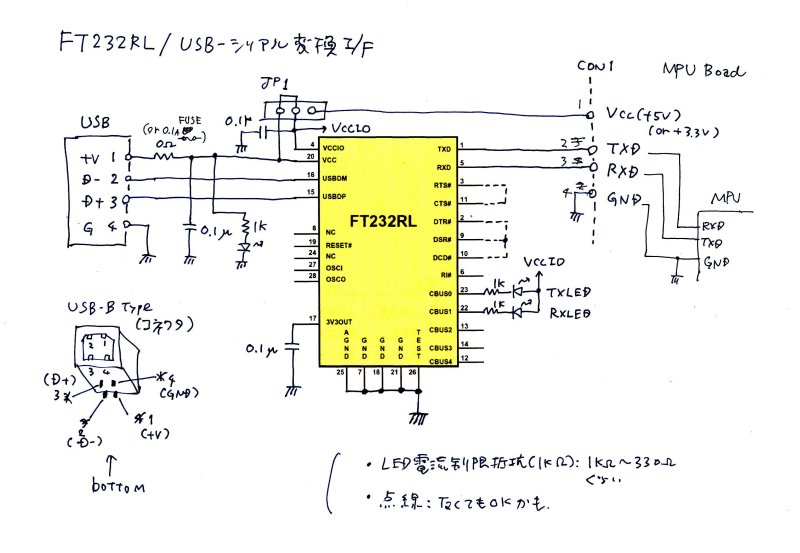 FT232RL / USB-シリアル変換 I/F
JP1
CON1
MPU Board
USB
FUSE
(or 0.1A
0Ω
0.1μ
VCCIO
+V 1
D- 2
D+ 3
G 4
0.1μ
1K
4 VCCIO
20 VCC
16 USBDM
15 USBDP
8 NC
19 RESET#
24 NC
27 OSCI
28 OSCO
17 3V3OUT
FT232RL
TXD 1
RXD 5
RTS# 3
CTS# 11
DTR# 2
DSR# 9
DCD# 10
RI# 6
CBUS0 23
CBUS1 22
CBUS2 13
CBUS3 14
CBUS4 12
AGND GND GND GND TEST
25 7 18 21 26
1
Vcc(+5V)
(or +3.3V)
2 TXD
3 RXD
4 GND
MPU
RXD
TXD
GND
VCCIO
1K TXLED
1K RXLED
0.1μ
USB-B Type
(コネクタ)
2 1
3 4
(D+)
3
4
(GND)
2
(D-)
1
(+V)
↑
bottom
・LED電流制限抵抗(1KΩ): 1KΩ〜330Ω
ぐらい
・点線: なくてもOKかも.